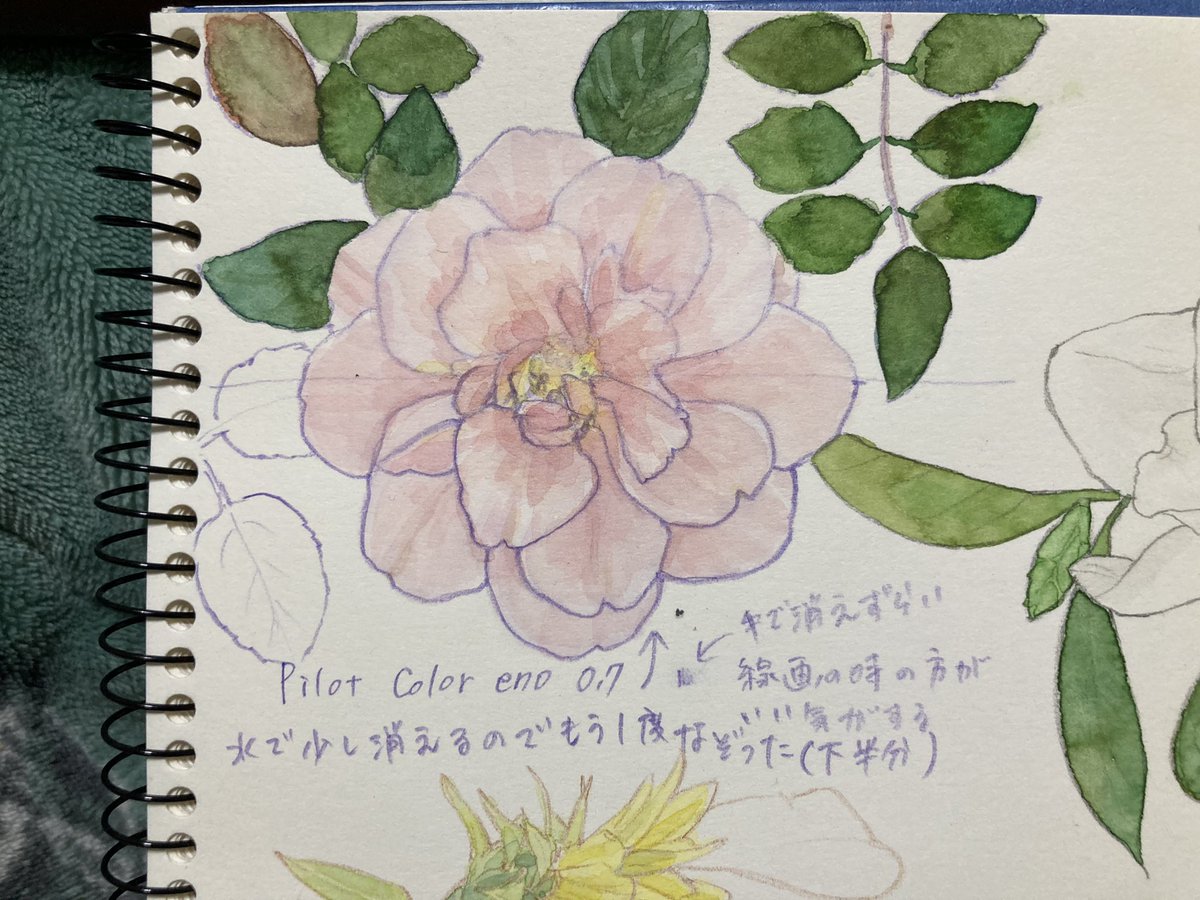 Pilot Color eno 0.7 ↑
水で少し消えるのでもう1度なぞった(下半分)
← で消えずらい
線画の時の方が
いい気がする